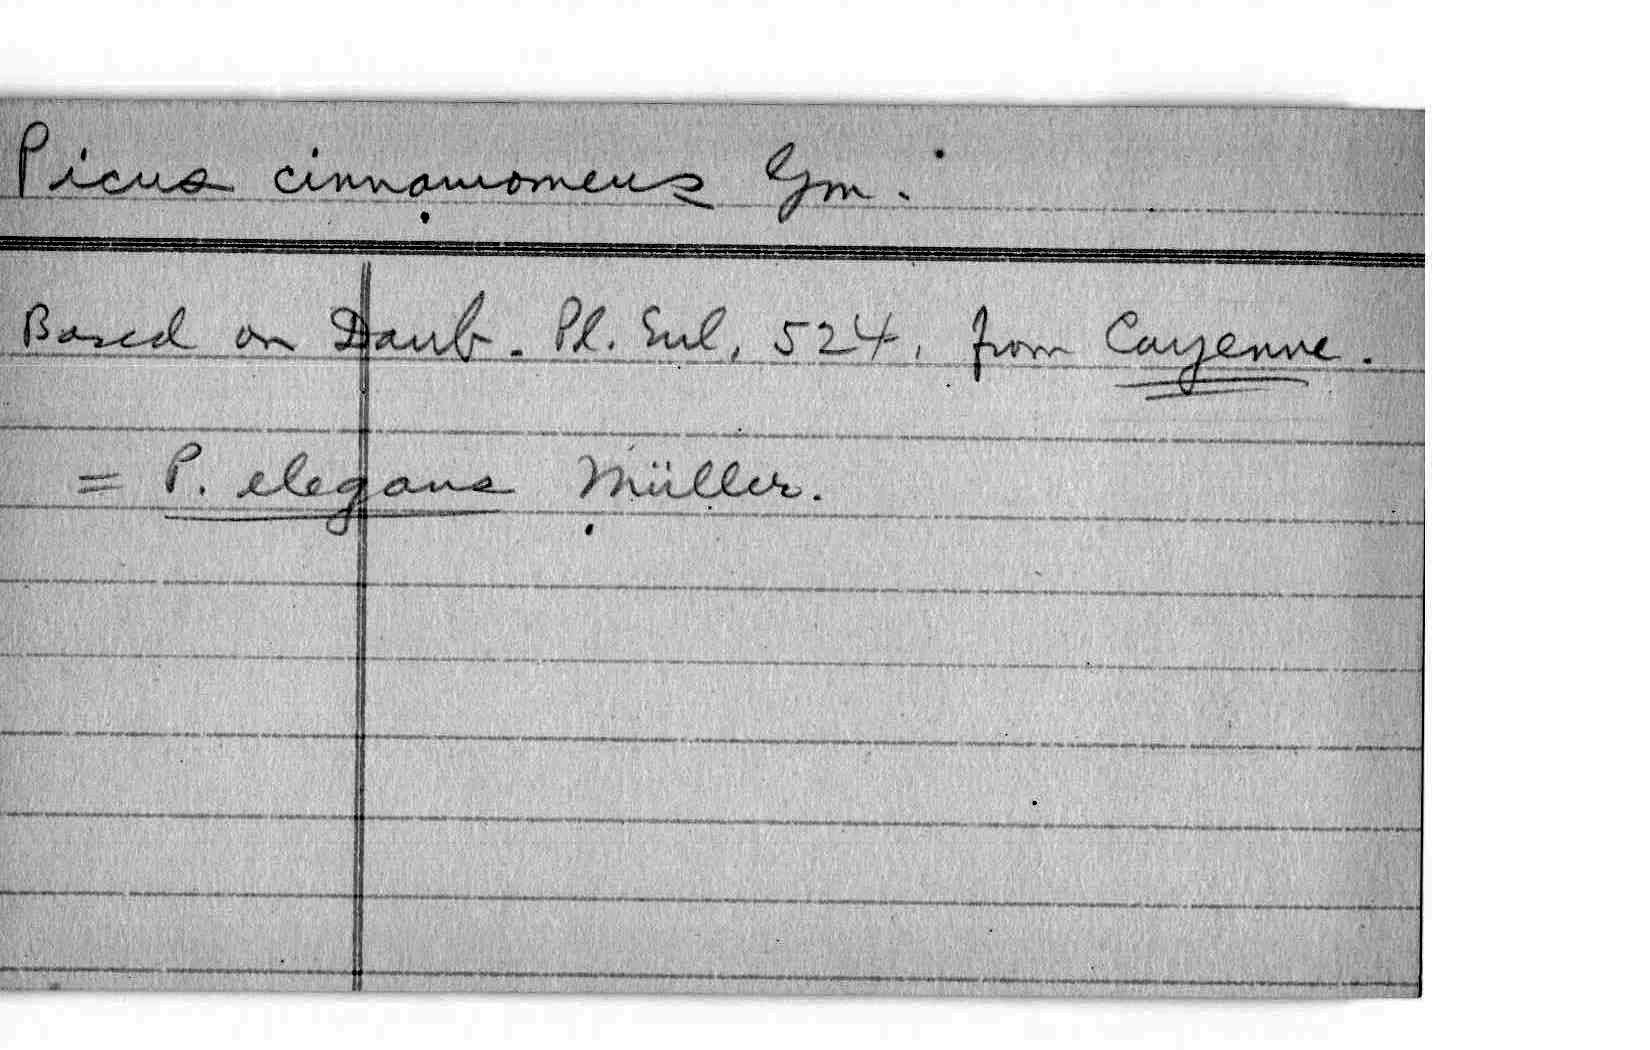 Picus cinnamomeus Gm.
Based on Daub. Pl. Enl, 524, from Cayenne.
= P. elegans Müller.